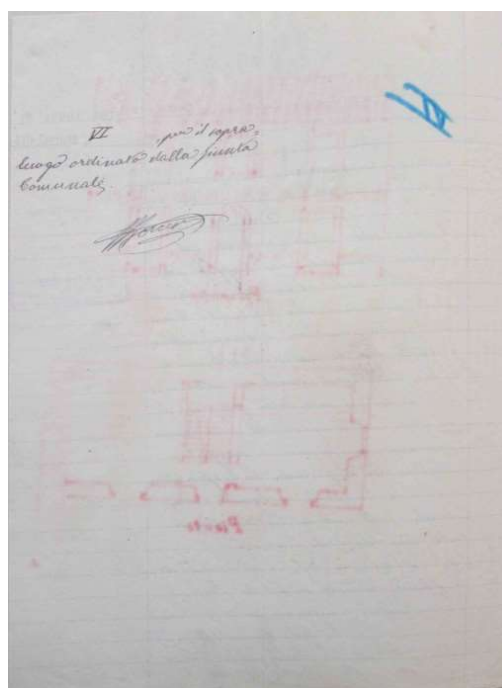 VI
VI per il sopra=
luogo ordinato dalla Giunta
Comunale.
Pianta